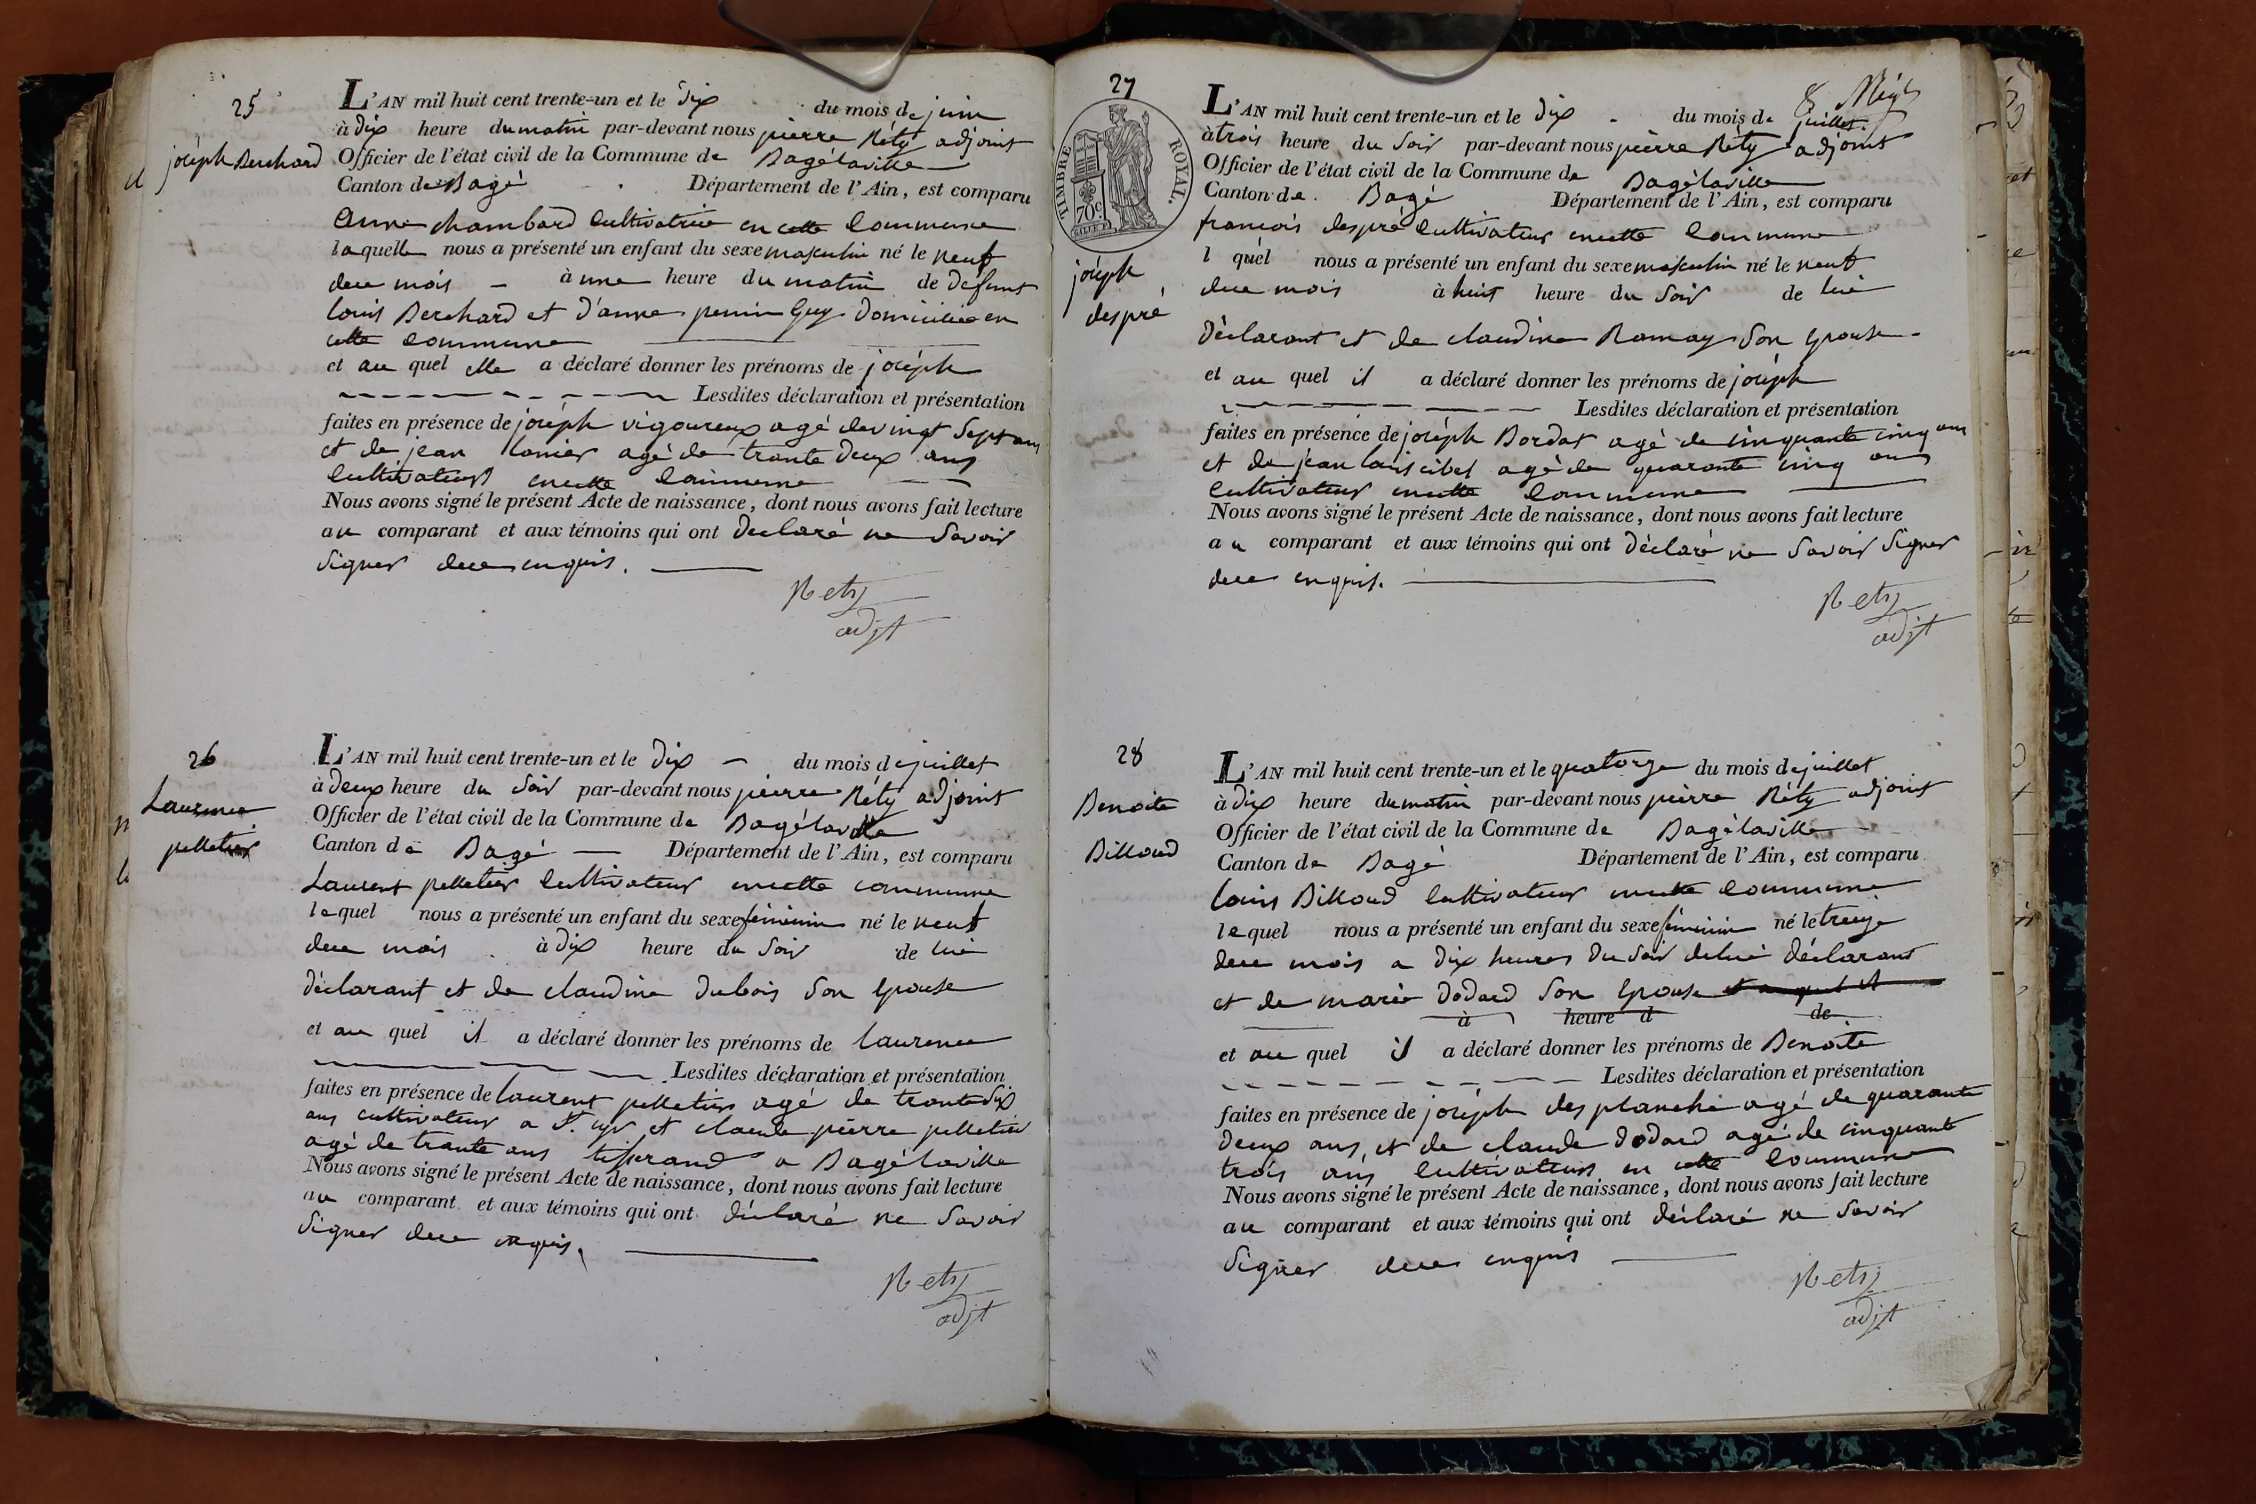 25
joséph Berchard
L'AN mil huit cent trente-un et le dix du mois de juin
à dix heure du matin par-devant nous pierre Réty adjoint
Officier de l'état civil de la Commune de Bagélaville
Canton de Bagé Département de l'Ain, est comparu
Anne chambard cultivatrice en cette commune
laquelle nous a présenté un enfant du sexe masculin né le neuf
du mois à une heure du matin de défunt
louis Berchard et d'anne perrin Guy domiciliée en
cette commune
et au quel elle a déclaré donner les prénoms de joséph
Lesdites déclaration et présentation
faites en présence de joséph vigoureux agé de vingt sept ans
et de jean agé de trante deux ans
cultivateurs en cette commune
Nous avons signé le présent Acte de naissance, dont nous avons fait lecture
au comparant et aux témoins qui ont déclaré ne savoir
signer de ce enquis.
Rety
adjt
26
Laurence
pelletier
L'AN mil huit cent trente-un et le dix du mois de juillet
à deux heure du soir par-devant nous pierre Réty adjoint
Officier de l'état civil de la Commune de Bagélaville
Canton de Bagé Département de l'Ain, est comparu
Laurent pelletier cultivateur en cette commune
lequel nous a présenté un enfant du sexe féminin né le neuf
de ce mois à dix heure du soir de lui
déclarant et de claudine dubois son épouse
et au quel il a déclaré donner les prénoms de laurence
Lesdites déclaration et présentation
faites en présence de laurent pelletier agé de trante dix
ans cultivateur a St. cyr et claude pierre pelletier
agé de trante ans tisserand a Bagélaville
Nous avons signé le présent Acte de naissance, dont nous avons fait lecture
au comparant et aux témoins qui ont déclaré ne savoir
signer de ce enquis.
Rety
adjt
27
TIMBRE ROYAL.
70c
joséph
despré
L'AN mil huit cent trente-un et le dix du mois de juillet
à trois heure du soir par-devant nous pierre Réty adjoint
Officier de l'état civil de la Commune de Bagélaville
Canton de Bagé Département de l'Ain, est comparu
francois despré cultivateur en cette commune
l quél nous a présenté un enfant du sexe masculin né le neuf
de ce mois à huit heure du soir de lui
déclarant et de claudine Ramay son épouse
et au quel il a déclaré donner les prénoms de joséph
Lesdites déclaration et présentation
faites en présence de joséph Bordat agé de cinquante cinq ans
et de jean louis cibet agé de quarante cinq ans
cultivateur en cette commune
Nous avons signé le présent Acte de naissance, dont nous avons fait lecture
au comparant et aux témoins qui ont déclaré ne savoir signer
de ce enquis.
Rety
adjt
28
Benoite
Billoud
L'AN mil huit cent trente-un et le quatorze du mois de juillet
à dix heure du matin par-devant nous pierre Réty adjoint
Officier de l'état civil de la Commune de Bagélaville
Canton de Bagé Département de l'Ain, est comparu
louis Billoud cultivateur en cette commune
lequel nous a présenté un enfant du sexe féminin né le treize
de ce mois a dix heures du soir de lui déclarant
et de marie dodard son épouse
à heure d de
et au quel il a déclaré donner les prénoms de Benoite
Lesdites déclaration et présentation
faites en présence de joséph desplanche agé de quarante
deux ans et de claude dodard agé de cinquante
trois ans cultivateurs en cette commune
Nous avons signé le présent Acte de naissance, dont nous avons fait lecture
au comparant et aux témoins qui ont déclaré ne savoir
signer de ce enquis
Rety
adjt